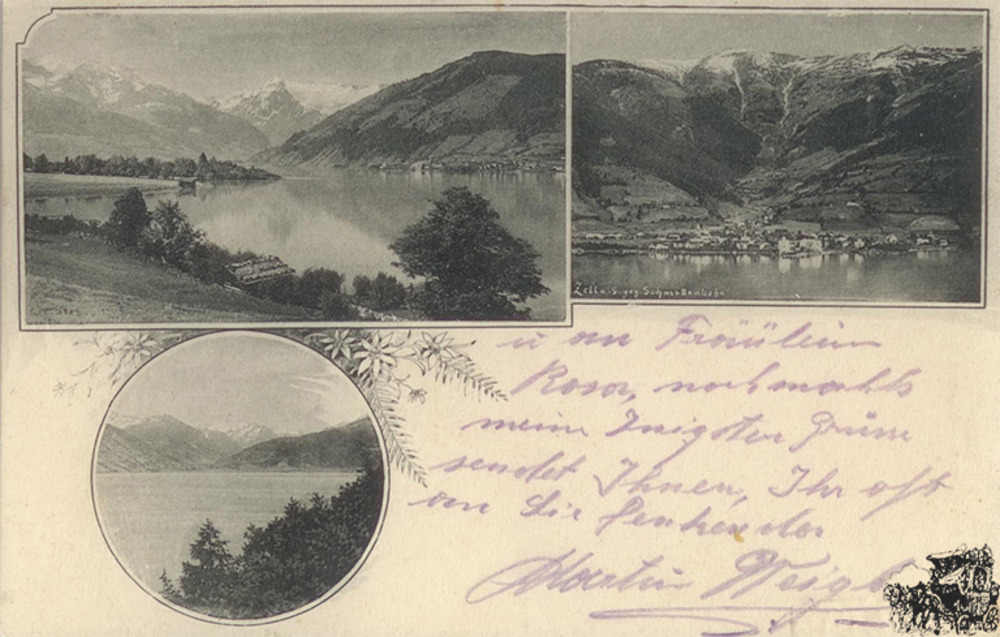 Zell a. S. geg. Schmittenhöhe
u an Fräulein
Rosa, nochmahls
meine Inigsten Grüsse
sendet Ihnen, Ihr oft
an Sie denkender
Martin Weigl